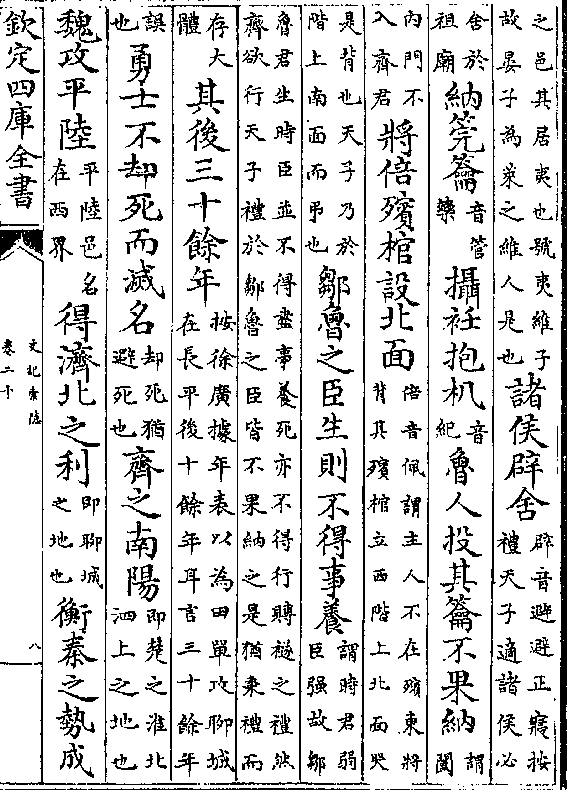 之邑其居夷也號夷維子
故晏子為萊之維人是也
諸侯辟舍
辟音避避正寢按
禮天子適諸侯必
舍於
祖廟
納筦籥
音管
藥
攝衽抱机
音
紀
魯人投其籥不果納
謂
闔
內門不
入齊君
將倍殯棺設北面
倍音佩謂主人不在殯東將
背其殯棺立西階上北面哭
是背也天子乃於
階上南面而弔也
鄒魯之臣生則不得事養
謂時君弱
臣强故鄒
魯君生時臣並不得盡事養死亦不得行賻襚之禮然
齊欲行天子禮於鄒魯之臣皆不果納之是猶秉禮而
存大
體
其後三十餘年
按徐廣據年表以為田單攻聊城
在長平後十餘年耳言三十餘年
誤
也
勇士不却死而滅名
却死猶
避死也
齊之南陽
即楚之淮北
泗上之地也
魏攻平陸
平陸邑名
在西界
得濟北之利
即聊城
之地也
衡秦之勢成
欽定四庫全書
史記索隱
卷二十
八